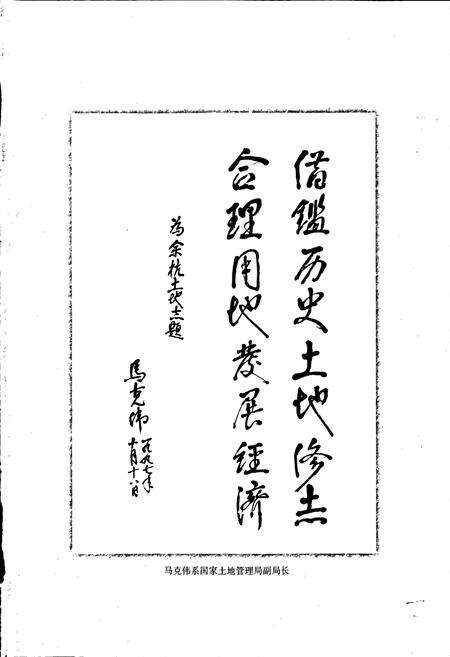 借鑑历史土地修志
合理用地發展经濟
為余杭土地志題
馬克伟
一九九七年
十月十八日
马克伟系国家土地管理局副局长